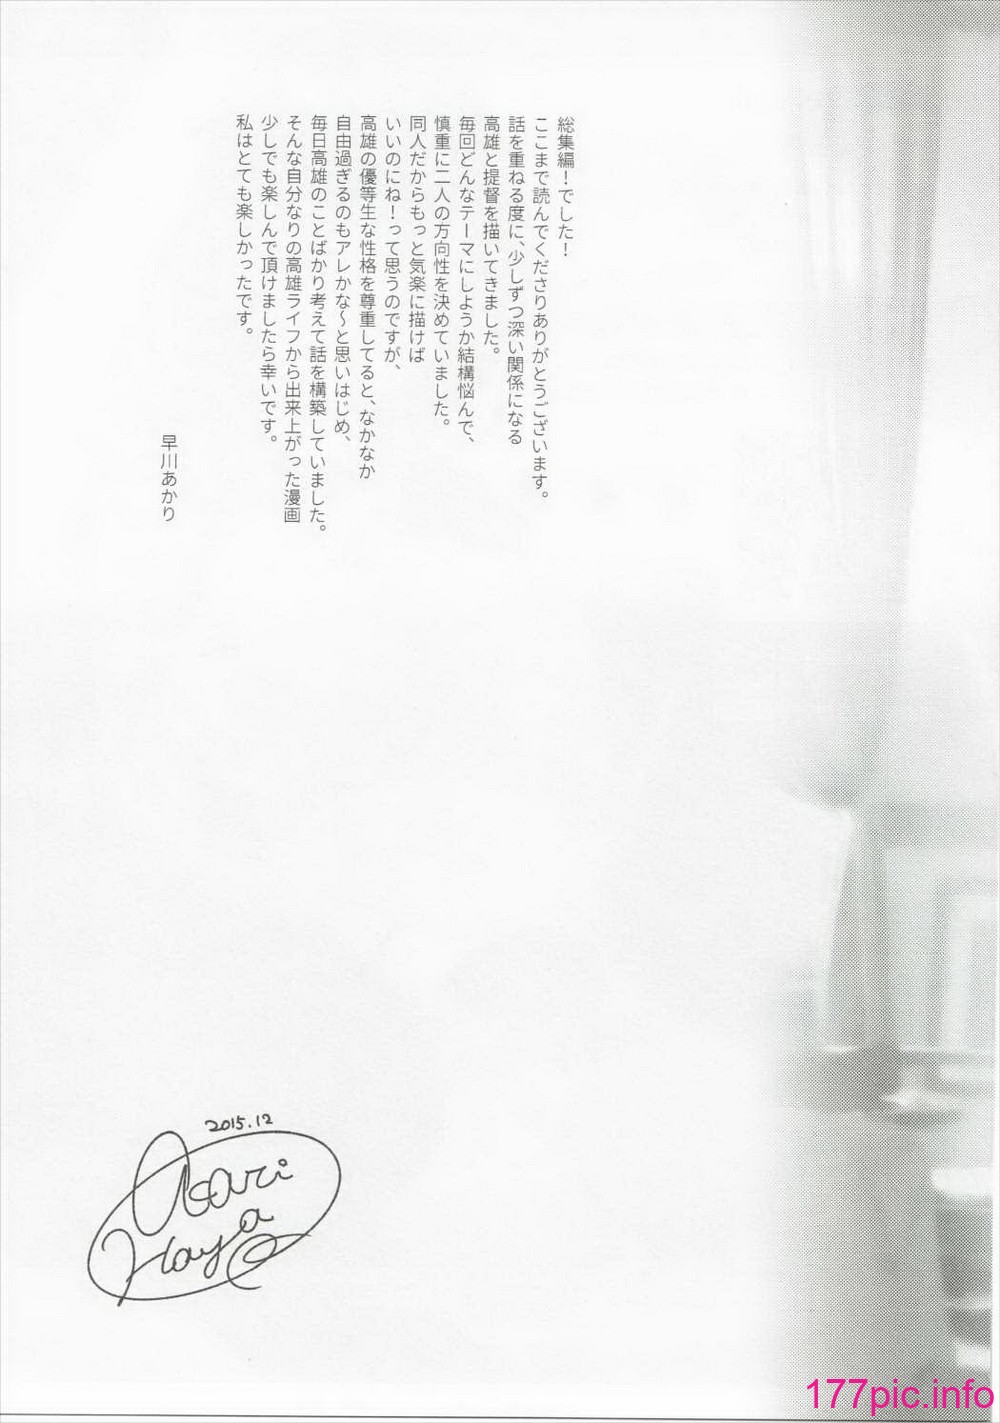 総集編！でした！
ここまで読んでくださりありがとうございます。
話を重ねる度に、少しずつ深い関係になる
高雄と提督を描いてきました。
毎回どんなテーマにしようか結構悩んで、
慎重に二人の方向性を決めていました。
同人だからもっと気楽に描けば
いいのにね！って思うのですが、
高雄の優等生な性格を尊重してると、なかなか
自由過ぎるのもアレかな～と思いはじめ、
毎日高雄のことばかり考えて話を構築していました。
そんな自分なりの高雄ライフから出来上がった漫画
少しでも楽しんで頂けましたら幸いです。
私はとても楽しかったです。
早川あかり
2015.12
Akari
Haya
177pic.info